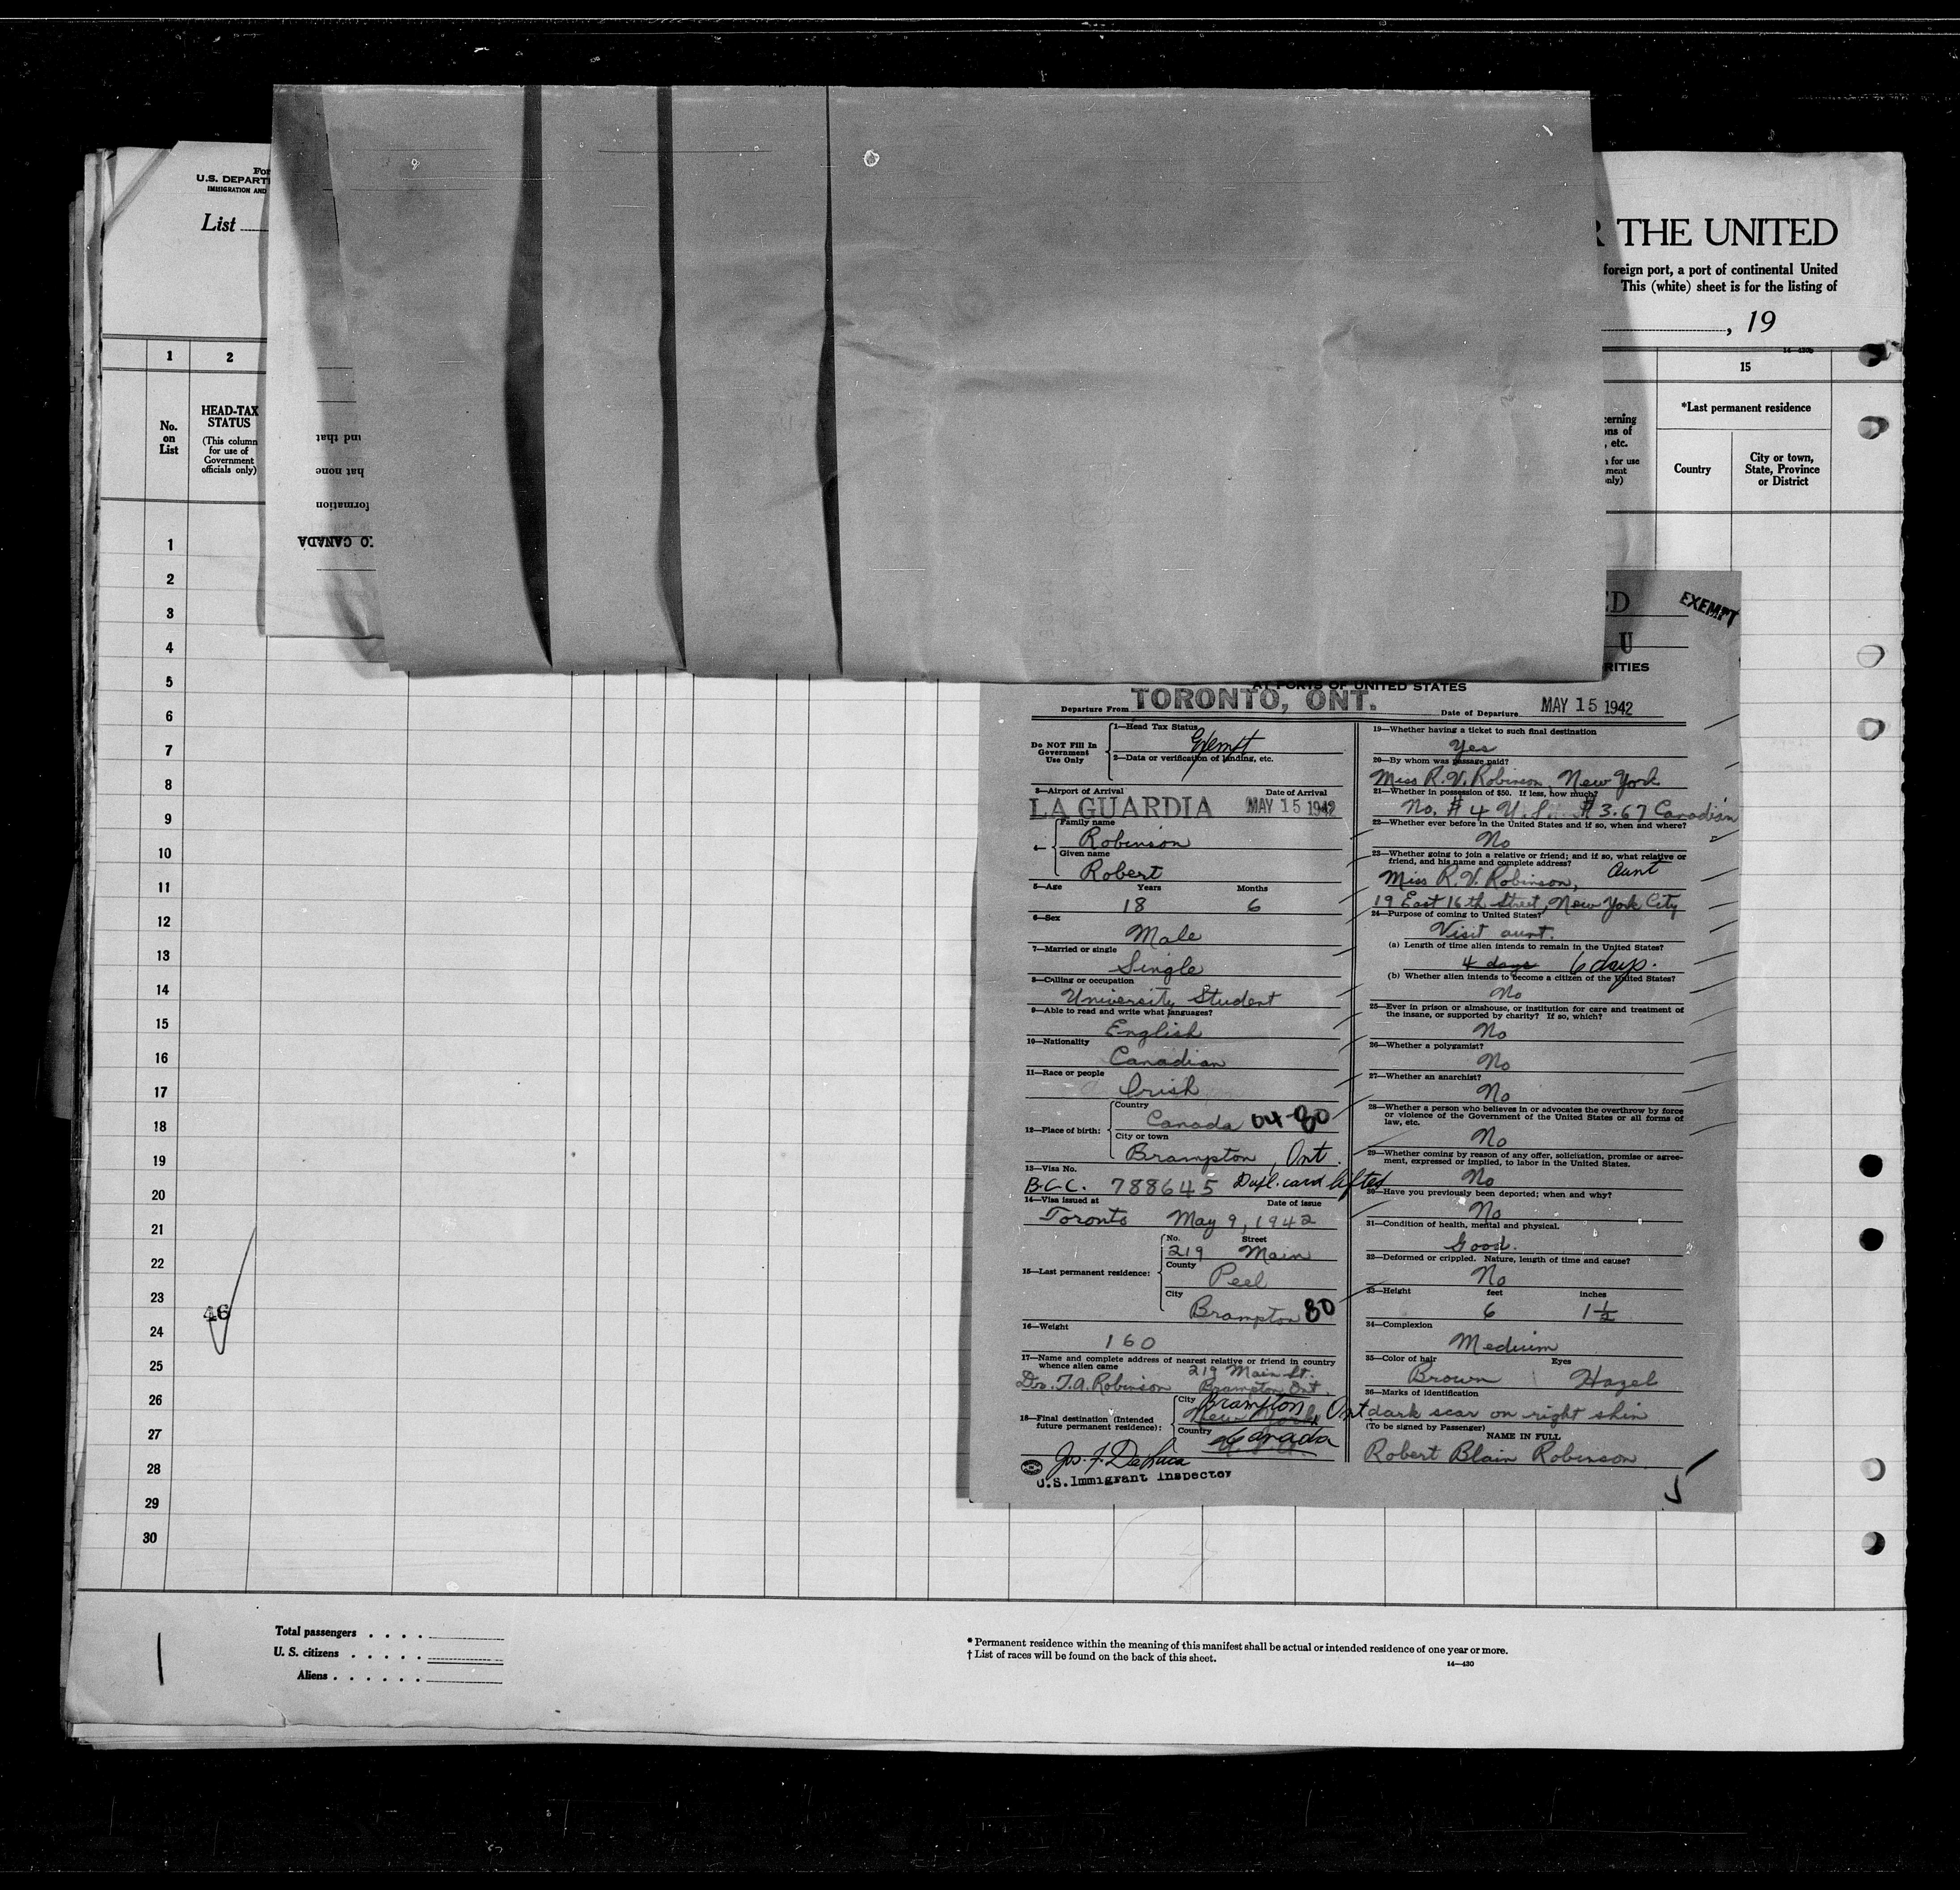 U.S. DEPART
IMMIGRATION AND
List
R THE UNITED
foreign port, a port of continental United
This (white) sheet is for the listing of
, 19
1
2
15
No.
on
List
HEAD-TAX
STATUS
(This column
for use of
Government
officials only)
und that
hat none
formation
O CANADA
*Last permanent residence
Country
City or town,
State, Province
or District
1
2
3
4
5
6
7
8
9
10
11
12
13
14
15
16
17
18
19
20
21
22
23
24
25
26
27
28
29
30
46
ED
EXEMPT
U
RITIES
AT PORTS OF UNITED STATES
Departure From TORONTO, ONT. Date of Departure MAY 15 1942
Do NOT Fill In
Government
Use Only
1—Head Tax Status
Exempt
2—Data or verification of landing, etc.
3—Airport of Arrival Date of Arrival
LA GUARDIA MAY 15 1942
4—
Family name
Robinson
Given name
Robert
5—Age Years Months
18 6
6—Sex
Male
7—Married or single
Single
8—Calling or occupation
University Student
9—Able to read and write what languages?
English
10—Nationality
Canadian
11—Race or people
Irish
12—Place of birth:
Country
Canada 04-80
City or town
Brampton, Ont.
13—Visa No.
B.C.C. 788645 Dupl. card lifted
14—Visa issued at Date of issue
Toronto May 9, 1942
15—Last permanent residence:
No. Street
219 Main
County
Peel
City
Brampton 80
16—Weight
160
17—Name and complete address of nearest relative or friend in country
whence alien came
219 Main St.
Dr. T.A. Robinson Brampton, Ont.
18—Final destination (Intended
future permanent residence):
City Brampton Ont
New York
Country
Canada
U.S. Immigrant Inspector
19—Whether having a ticket to such final destination
Yes
20—By whom was passage paid?
Miss R.V. Robinson, New York
21—Whether in possession of $50. If less, how much?
No. $4 U.S. $3.67 Canadian
22—Whether ever before in the United States and if so, when and where?
No
23—Whether going to join a relative or friend; and if so, what relative or
friend, and his name and complete address?
Aunt
Miss R.V. Robinson,
19 East 16th Street, New York City
24—Purpose of coming to United States?
Visit aunt.
(a) Length of time alien intends to remain in the United States?
4 days 6 days.
(b) Whether alien intends to become a citizen of the United States?
No
25—Ever in prison or almshouse, or institution for care and treatment of
the insane, or supported by charity? If so, which?
No
26—Whether a polygamist?
No
27—Whether an anarchist?
No
28—Whether a person who believes in or advocates the overthrow by force
or violence of the Government of the United States or all forms of
law, etc.
No
29—Whether coming by reason of any offer, solicitation, promise or agree-
ment, expressed or implied, to labor in the United States.
No
30—Have you previously been deported; when and why?
No
31—Condition of health, mental and physical.
Good.
32—Deformed or crippled. Nature, length of time and cause?
No
33—Height feet inches
6 1½
34—Complexion
Medium
35—Color of hair Eyes
Brown Hazel
36—Marks of identification
dark scar on right shin
(To be signed by Passenger)
NAME IN FULL
Robert Blain Robinson
Total passengers
U. S. citizens
Aliens
* Permanent residence within the meaning of this manifest shall be actual or intended residence of one year or more.
† List of races will be found on the back of this sheet.
14—430